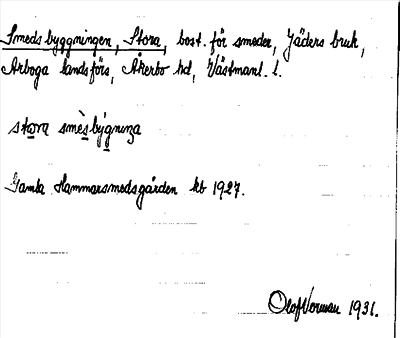 Smedsbyggningen, Stora, bost. för smeder, Jäders bruk,
Arboga landsförs, Åkerbo hd, Västmanl. l.
stora smè̱sbýgninga
Gamla Hammarsmedsgården kb 1927.
Olof Norman 1931.